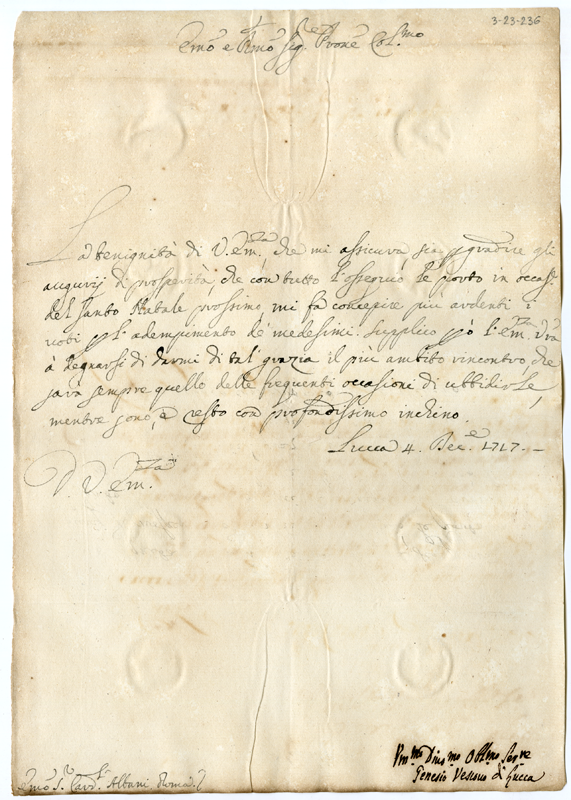 3-23-236
Emo e Rmo Sig.r Prone Col.mo
La benignità di V. Em.za che mi assicura sia p gradire gli
augurij di prosperità che con tutto l'ossequio le porto in occas.e
del Santo Natale prossimo mi fà concepire più ardenti i
voti pl' adempimento de medesimi. Supplico pò l'Em.za Vra
à degnarsi di darmi di tal grazia il più ambito rincontro, che
sarà sempre quello delle frequenti occasioni di ubbidirle,
mentre sono, e resto con profondissimo inchino.
Lucca 4. Dec.e 1717.
D. V. Em.za
Vm.mo Diuo.mo Obl.mo Ser.re
Genesio Vescouo di Lucca
Emo S.r Card.l Albani Roma